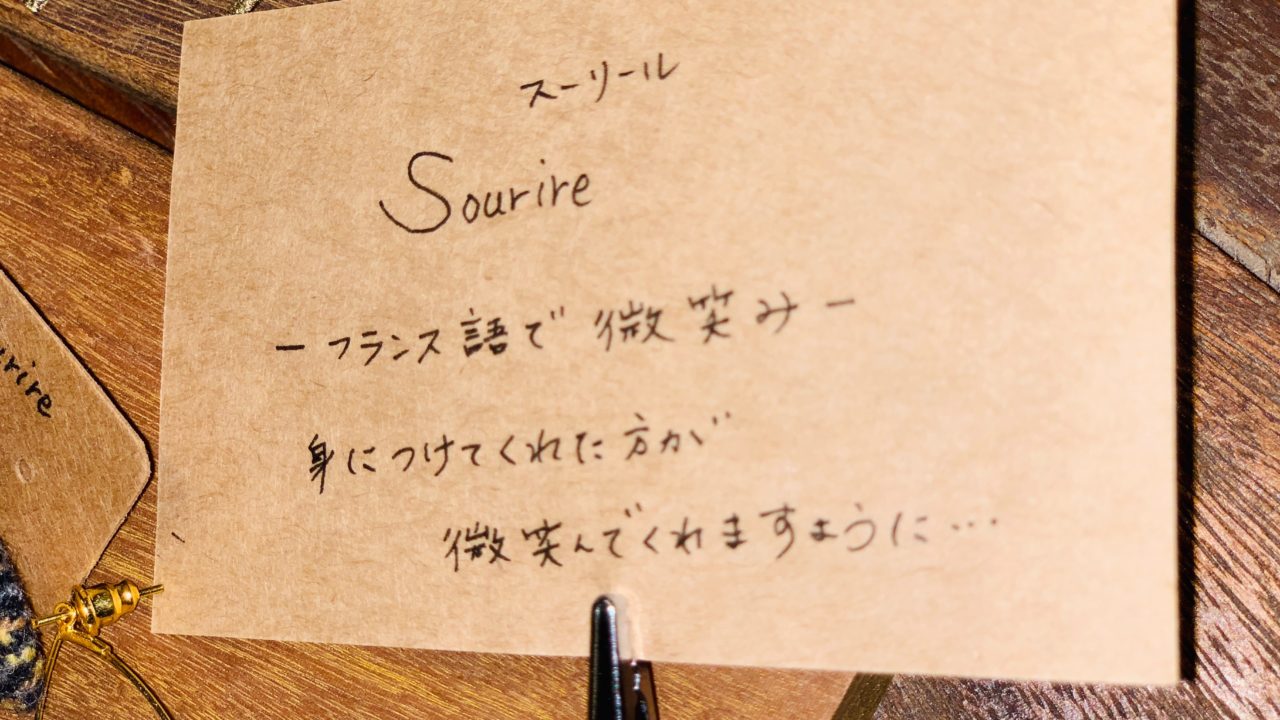 スーリール
Sourire
ーフランス語で 微笑みー
身につけてくれた方が
微笑んでくれますように…
urire